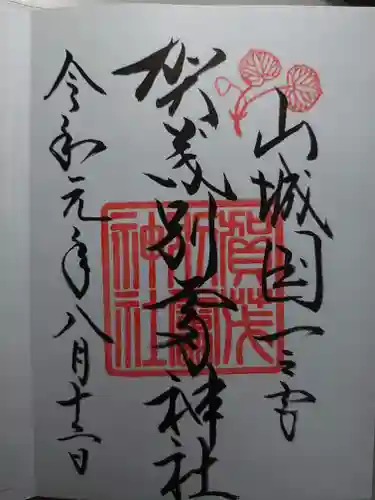 山城国一之宮
賀茂別雷神社
令和元年八月十二日
賀茂
別雷
神社